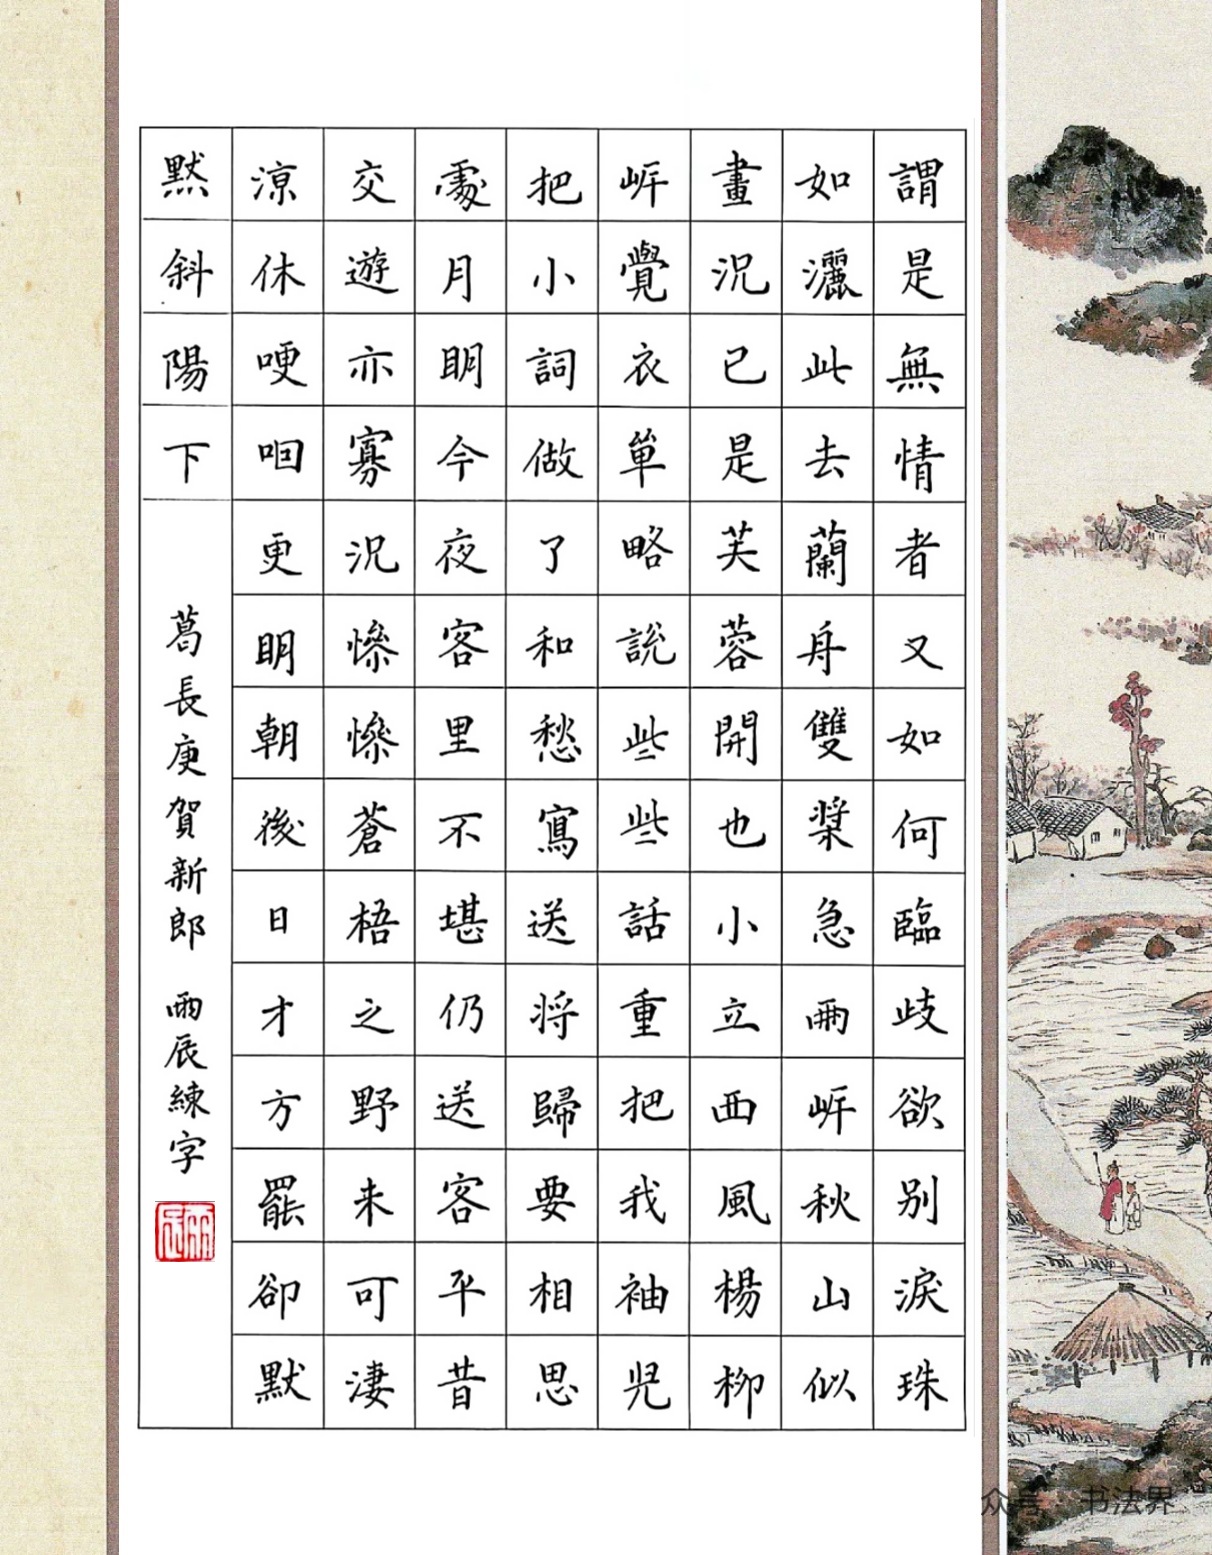 謂是無情者又如何臨歧欲别淚珠
如灑此去蘭舟雙槳急兩岍秋山似
畫況已是芙蓉開也小立西風楊柳
岍覺衣單略說些些話重把我袖兒
把小詞做了和愁寫送將歸要相思
處月明今夜客里不堪仍送客平昔
交遊亦寡況慘慘蒼梧之野未可淒
涼休哽咽更明朝後日才方罷卻默
黙斜陽下
葛長庚賀新郎 雨辰練字
雨辰
众号 书法界